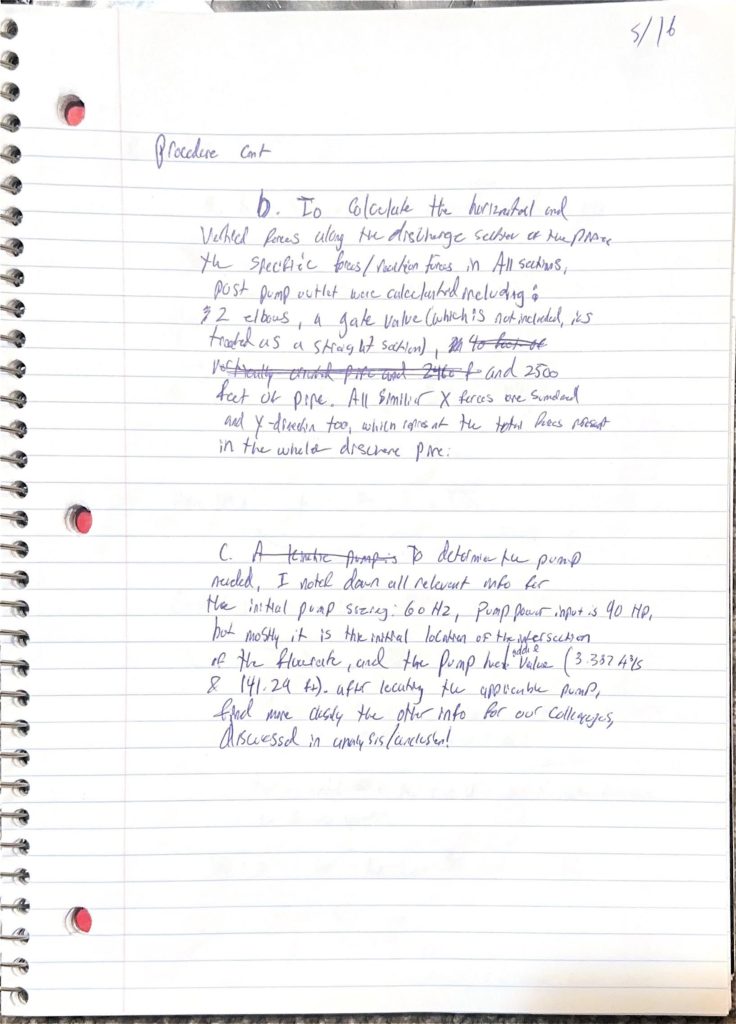 5/16
Procedure Cont
b. To calculate the horizontal and
Vertical forces along the discharge section of the
the specific forces/reaction forces in All sections,
post pump outlet were calculated including:
2 elbows, a gate valve (which is not included, its
treated as a straight section), 40 feet of
vertically pipe and 2460 f and 2500
feet of pipe. All similar X forces are summed
and Y-direction too, which represent the total forces present
in the whole discharge pipe.
C. A kinetic pump is To determine the pump
needed, I noted down all relevant info for
the initial pump sizing: 60 Hz, Pump power input is 90 HP,
but mostly it is the initial location of the intersection
of the flowrate, and the pump head added Value (3.387
& 141.29 ft). after locating the applicable pump,
find more the other info for our
discussed in analysis/conclusion!